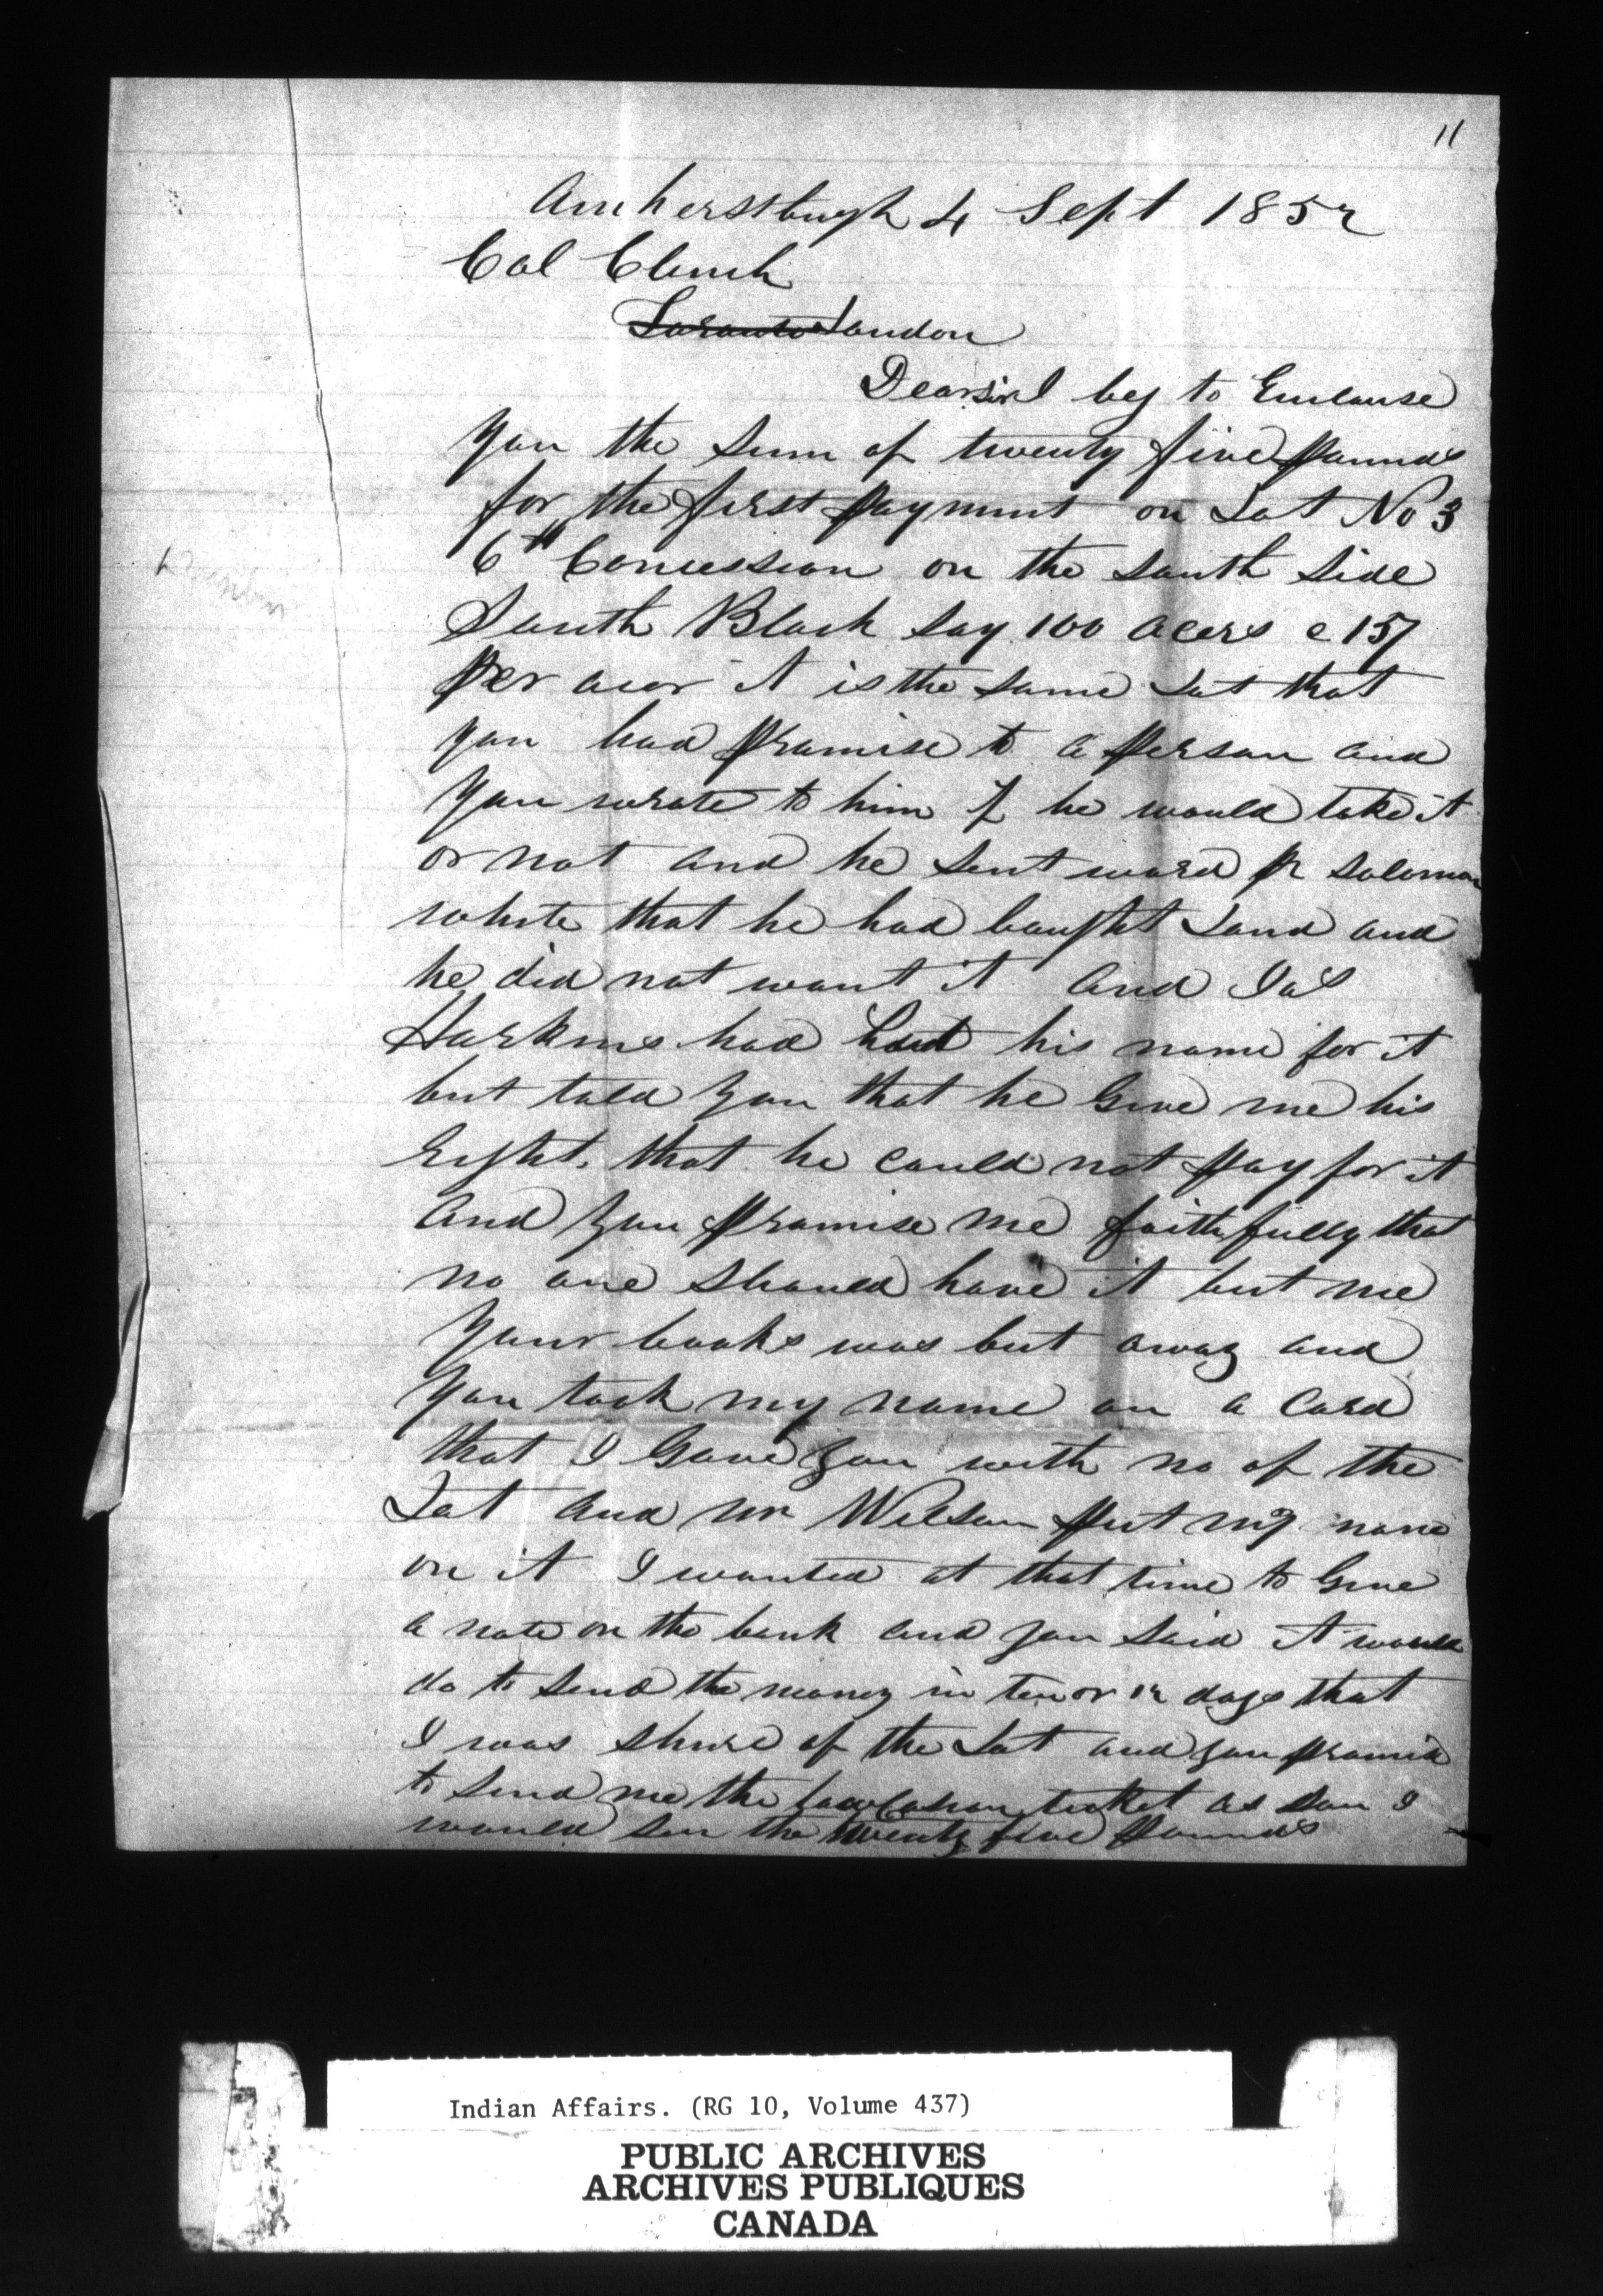 11
Amherstburgh 4 Sept 1852
Col Clench
Toronto London
Dear sir I beg to Enclouse
you the sum of twenty five pounds
for the first payment on Lot No 3
6th Concession on the south side
South Block say 100 acers @ 15/
per acer it is the same Lot that
you had promise to a person and
you wrote to him if he would take it
or not and he sent word pr Solomon
white that he had bought Land and
he did not want it and Jas
Harkins had his name for it
but told you that he Give me his
right, that he could not pay for it
and you promise me faithfully that
no one should have it but me
Your books was but away and
you took my name on a Card
that I Gave you with no of the
Lot and Mr Wilson put my name
on it I wanted at that time to Give
a note on the bank and you said it would
do to send the money in ten or 12 days that
I was shure of the Lot and you promis
to send me the ticket as son I
would sen the twenty five pounds
Indian Affairs. (RG 10, Volume 437)
PUBLIC ARCHIVES
ARCHIVES PUBLIQUES
CANADA